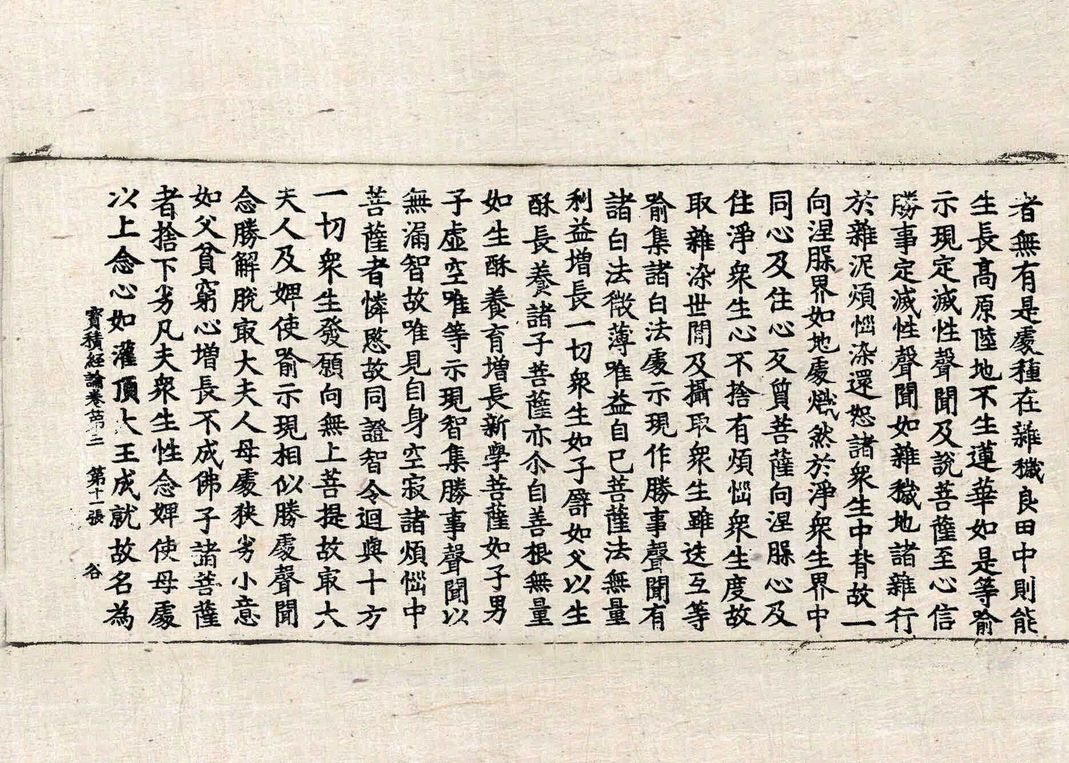 者無有是處種在雜穢良田中則能
生長高原陸地不生蓮華如是等喻
示現定滅性聲聞及說菩薩至心信
勝事定滅性聲聞如雜穢地諸雜行
於雜泥煩惱染還怒諸衆生中背故一
向涅脲界如地處熾然於淨衆生界中
同心及住心及質菩薩向涅脲心及
住淨衆生心不捨有煩惱衆生度故
取雜染世間及攝取衆生雖迭互等
喻集諸白法處示現作勝事聲聞有
諸白法微薄唯益自己菩薩法無量
利益增長一切衆生如子譬如父以生
酥長養諸子菩薩亦尒自善根無量
如生酥養育增長新學菩薩如子男
子虛空唯等示現智集勝事聲聞以
無漏智故唯見自身空寂諸煩惱中
菩薩者憐愍故同證智令迴與十方
一切衆生發願向無上菩提故取大
夫人及婢使喻示現相似勝處聲聞
念勝解脫取大夫人母處狹劣小意
如父貧窮心增長不成佛子諸菩薩
者捨下劣凡夫衆生性念婢使母處
以上念心如灌頂大王成就故名為
寶積經論卷第三　第十一張　谷